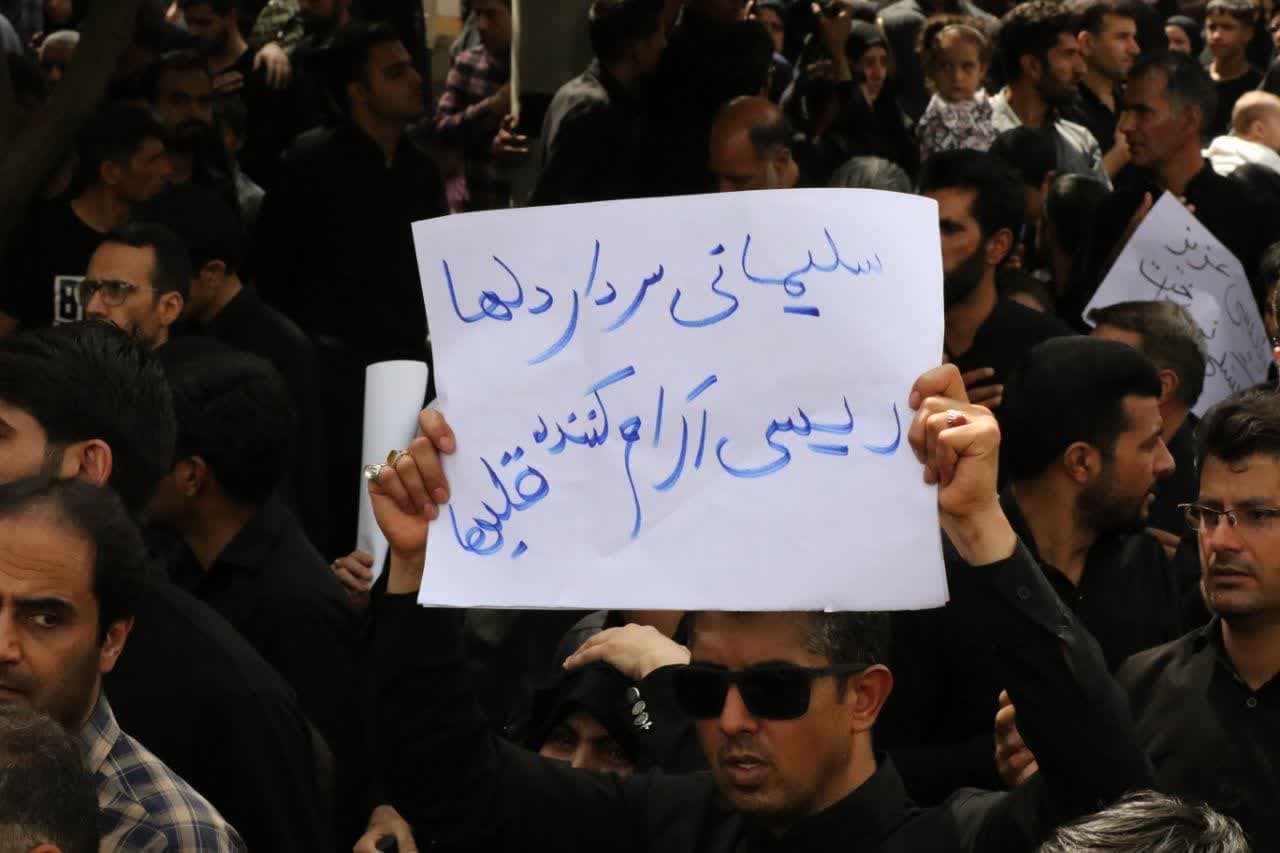 سلیمانی سردار دلها
رییسی آرام کننده قلبها